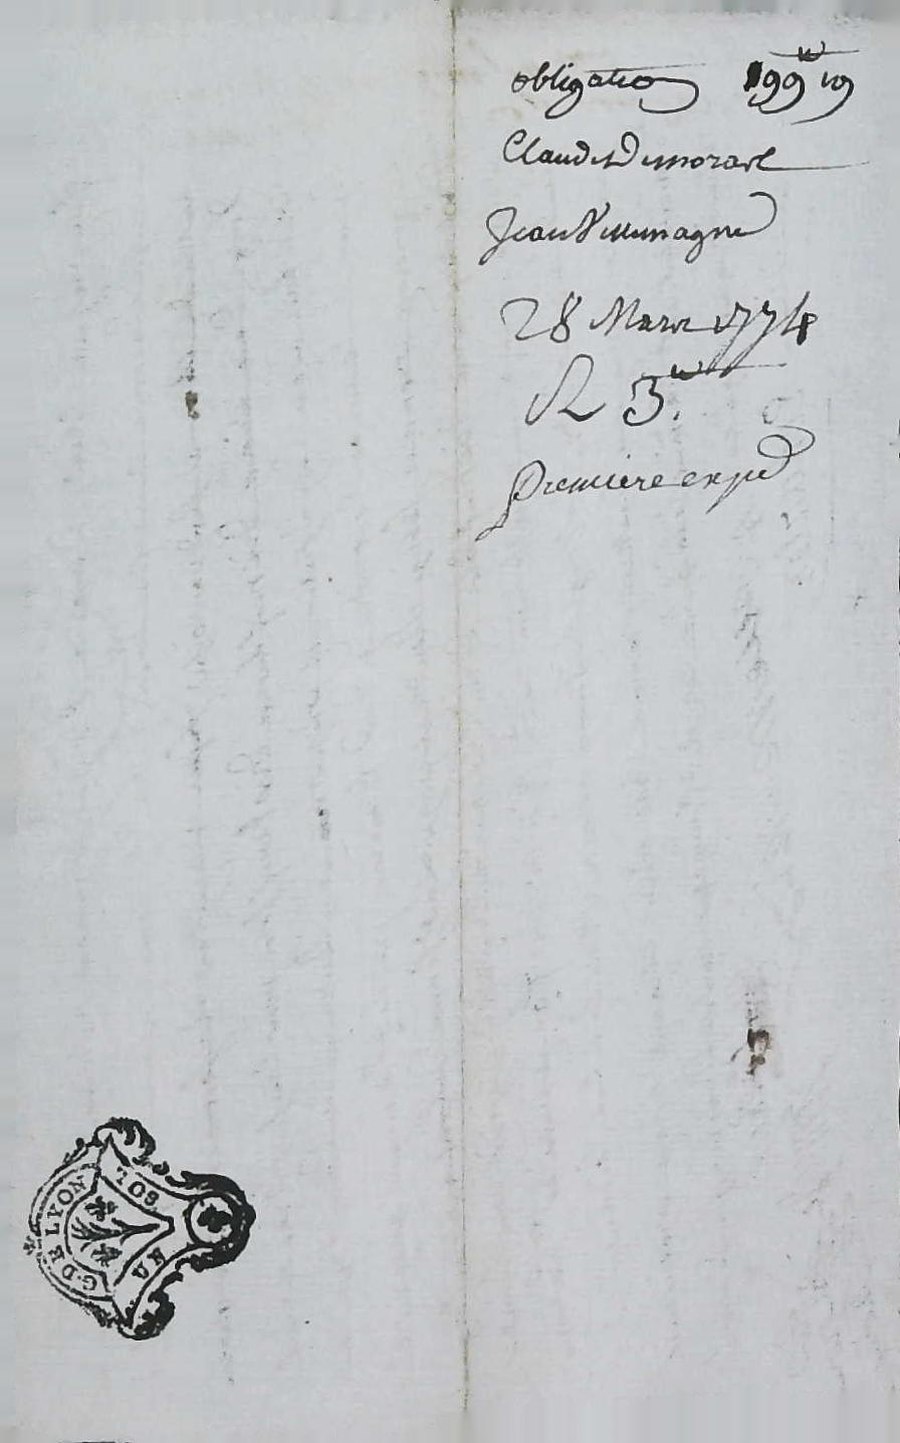 obligation 199 19
Claude Demorael
Jean Villemagne
28 Mars 1774
R 3
premiere exped
G. DE LYON
SOL
UN